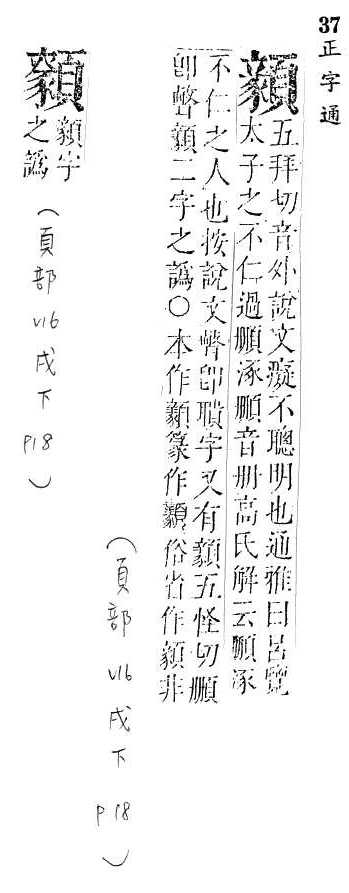 37
正字通
顡
五拜切音外說文癡不聰明也通雅曰呂覽
太子之不仁過涿音册高氏解云涿
不仁之人也按說文卽聵字又有顡五怪切
卽顡二字之譌○本作顡篆作俗省作非
(頁部 v16 戌下 p18)
顡字
之譌
(頁部 v16 戌下 p18)